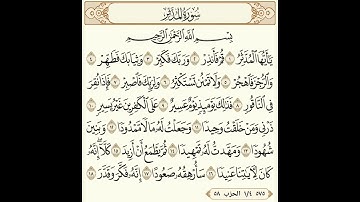 سُورَةُ المُدَّثِّرِ
بِسْمِ اللَّهِ الرَّحْمَٰنِ الرَّحِيمِ
يَا أَيُّهَا الْمُدَّثِّرُ ١ قُمْ فَأَنذِرْ ٢ وَرَبَّكَ فَكَبِّرْ ٣ وَثِيَابَكَ فَطَهِّرْ ٤
وَالرُّجْزَ فَاهْجُرْ ٥ وَلَا تَمْنُن تَسْتَكْثِرُ ٦ وَلِرَبِّكَ فَاصْبِرْ ٧ فَإِذَا نُقِرَ
فِي النَّاقُورِ ٨ فَذَٰلِكَ يَوْمَئِذٍ يَوْمٌ عَسِيرٌ ٩ عَلَى الْكَافِرِينَ غَيْرُ يَسِيرٍ ١٠
ذَرْنِي وَمَنْ خَلَقْتُ وَحِيدًا ١١ وَجَعَلْتُ لَهُ مَالًا مَّمْدُودًا ١٢ وَبَنِينَ
شُهُودًا ١٣ وَمَهَّدتُّ لَهُ تَمْهِيدًا ١٤ ثُمَّ يَطْمَعُ أَنْ أَزِيدَ ١٥ كَلَّا إِنَّهُ
كَانَ لِآيَاتِنَا عَنِيدًا ١٦ سَأُرْهِقُهُ صَعُودًا ١٧ إِنَّهُ فَكَّرَ وَقَدَّرَ ١٨
٥٧٥ ١/٤ الحزب ٥٨